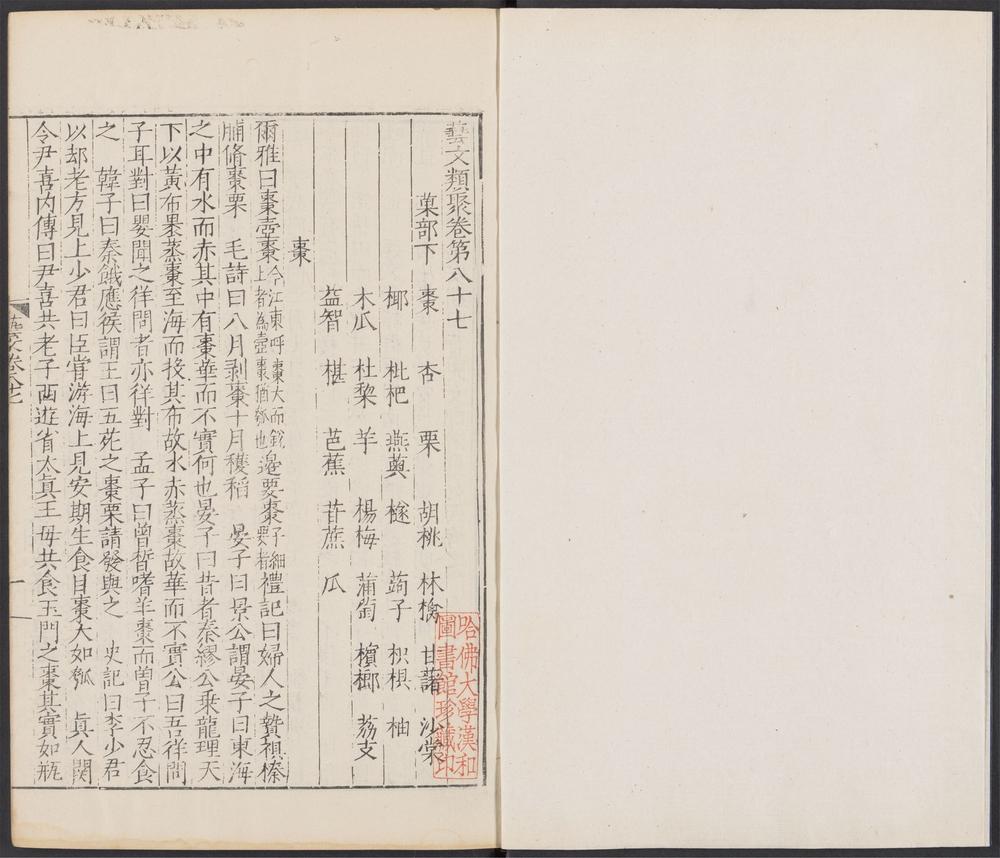 藝文類聚卷第八十七
菓部下 棗 杏 栗 胡桃 林檎 甘藷 沙棠
椰 枇杷 燕薁 檖 蒟子 枳椇 柚
木瓜 杜梨 芋 楊梅 蒲萄 檳榔 荔支
益智 椹 芭蕉 苷蔗 瓜
棗
爾雅曰棗壺棗今江東呼棗大而銳上者為壺棗猶瓠也邊要棗子細要者禮記曰婦人之贄椇榛
脯脩棗栗 毛詩曰八月剥棗十月穫稻 晏子曰景公謂晏子曰東海
之中有水而赤其中有棗華而不實何也晏子曰昔者秦繆公乘龍理天
下以黃布褁蒸棗至海而投其布故水赤蒸棗故華而不實公曰吾徉問
子耳對曰嬰聞之徉問者亦徉對 孟子曰曾晳嗜羊棗而曾子不忍食
之 韓子曰秦饑應侯謂王曰五苑之棗栗請發與之 史記曰李少君
以却老方見上少君曰臣甞游海上見安期生食巨棗大如瓠 真人關
令尹喜内傳曰尹喜共老子西遊省太真王母共食玉門之棗其實如瓶
藝文卷八七
一
哈佛大學漢和
圖書館珍藏印